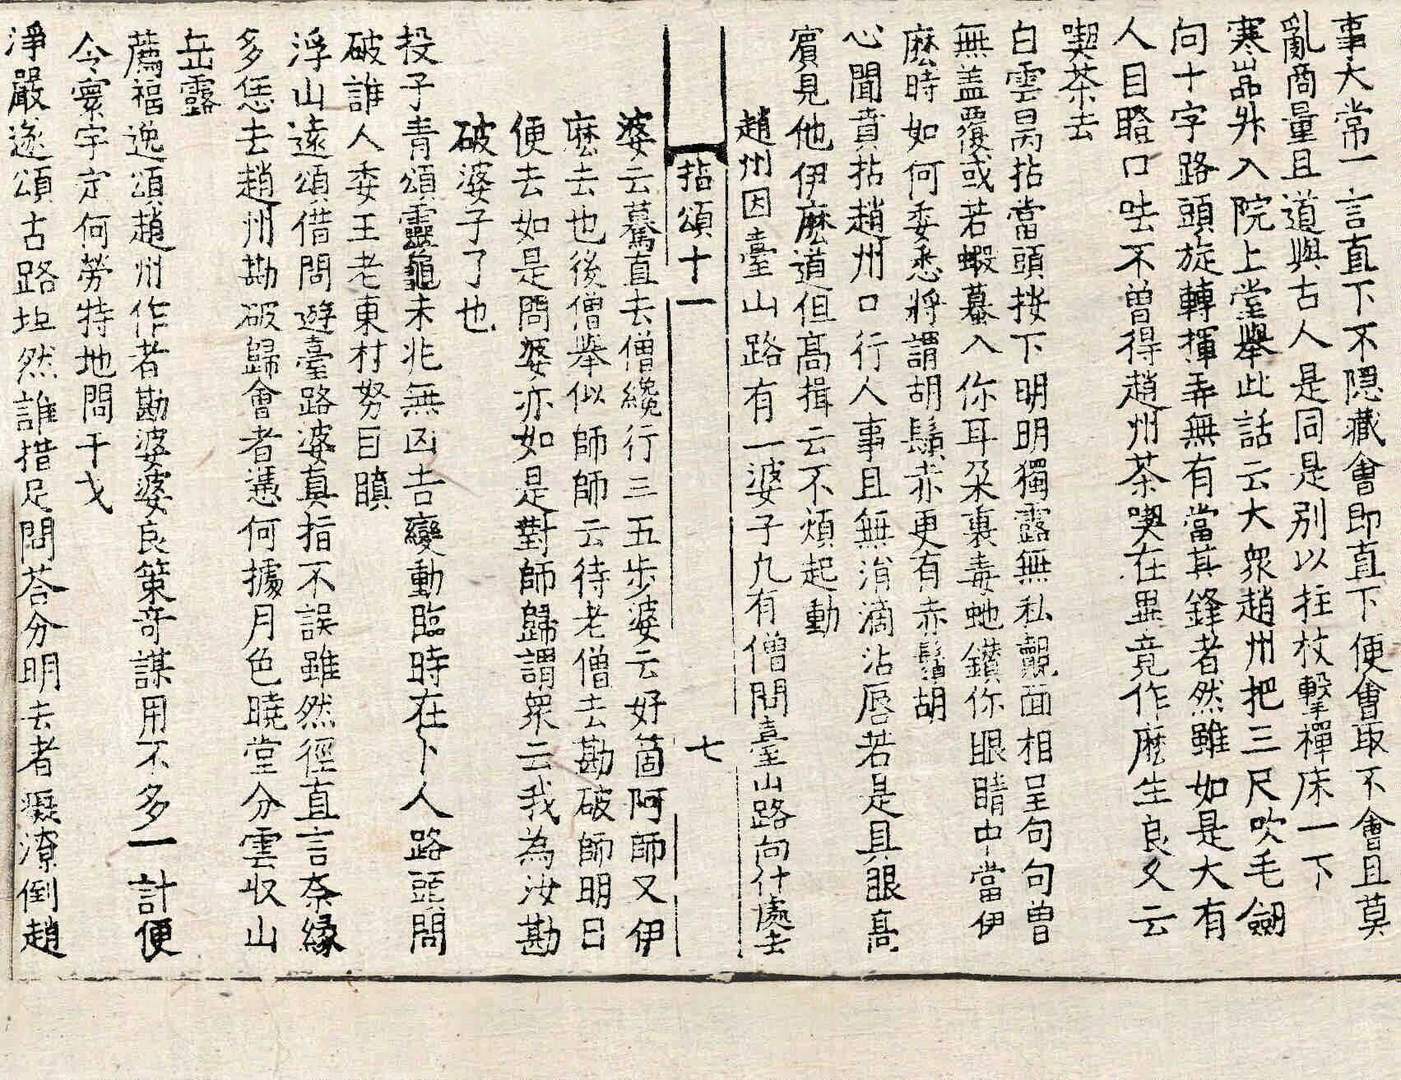 事大常一言直下不隱藏會即直下便會取不會且莫
亂商量且道與古人是同是別以拄杖擊禪床一下
寒嵓升入院上堂擧此話云大衆趙州把三尺吹毛劒
向十字路頭旋轉揮弄無有當其鋒者然雖如是大有
人目瞪口呿不曾得趙州茶喫在畢竟作麽生良久云
喫茶去
白雲昺拈當頭按下明明獨露無私覿面相呈句句曾
無盖覆或若蝦蟇入你耳朶裏毒虵鑚你眼睛中當伊
麽時如何委悉將謂胡鬚赤更有赤鬚胡
心聞賁拈趙州口行人事且無涓滴沾唇若是具眼高
賓見他伊麽道但高揖云不煩起動
趙州因臺山路有一婆子凡有僧問臺山路向什處去
拈頌十一 七
婆云驀直去僧纔行三五步婆云好箇阿師又伊
麽去也後僧擧似師師云待老僧去勘破師明日
便去如是問婆亦如是對師歸謂衆云我為汝勘
破婆子了也
投子青頌靈龜未兆無凶吉變動臨時在卜人路頭問
破誰人委王老東村努目瞋
浮山遠頌借問遊臺路婆眞指不誤雖然徑直言奈緣
多恁去趙州勘破歸會者憑何據月色曉堂分雲収山
岳露
薦福逸頌趙州作者勘婆婆良策奇謀用不多一計便
令寰宇定何勞特地問干戈
淨嚴遂頌古路坦然誰措足問荅分明去者癡潦倒趙